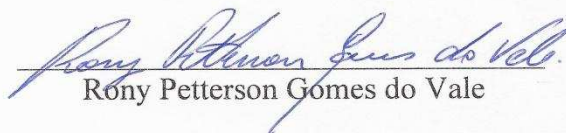 Rony Petterson Gomes do Vale.
Rony Petterson Gomes do Vale